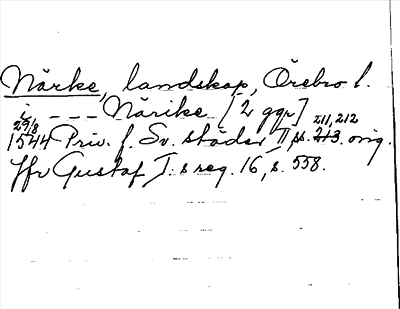 Närke, landskap, Örebro l.
i - - - Närike [2 ggr]
29/8 1544 Priv. f. Sv. städer II, ss. 211, 212 orig.
Jfr Gustaf I:s reg. 16, s. 558.